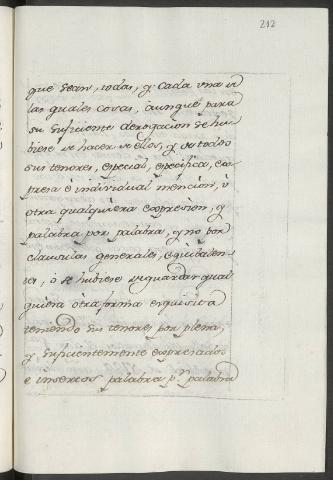 212
que sean, todas, y cada una de
las quales cosas, aunque para
su suficiente derogacion se hu-
biese de hacer de ellos, y de todos
sus tenores, especial, especifica, ex-
presa è individual mencion, ò
otra qualquiera expresion, y
palabra por palabra, y no por
clausulas generales, equibalen-
tes, ò se hubiese de guardar qual
quiera otra forma exquisita
teniendo sus tenores por plena,
y suficientemente expresados
e insertos palabra pr. palabra